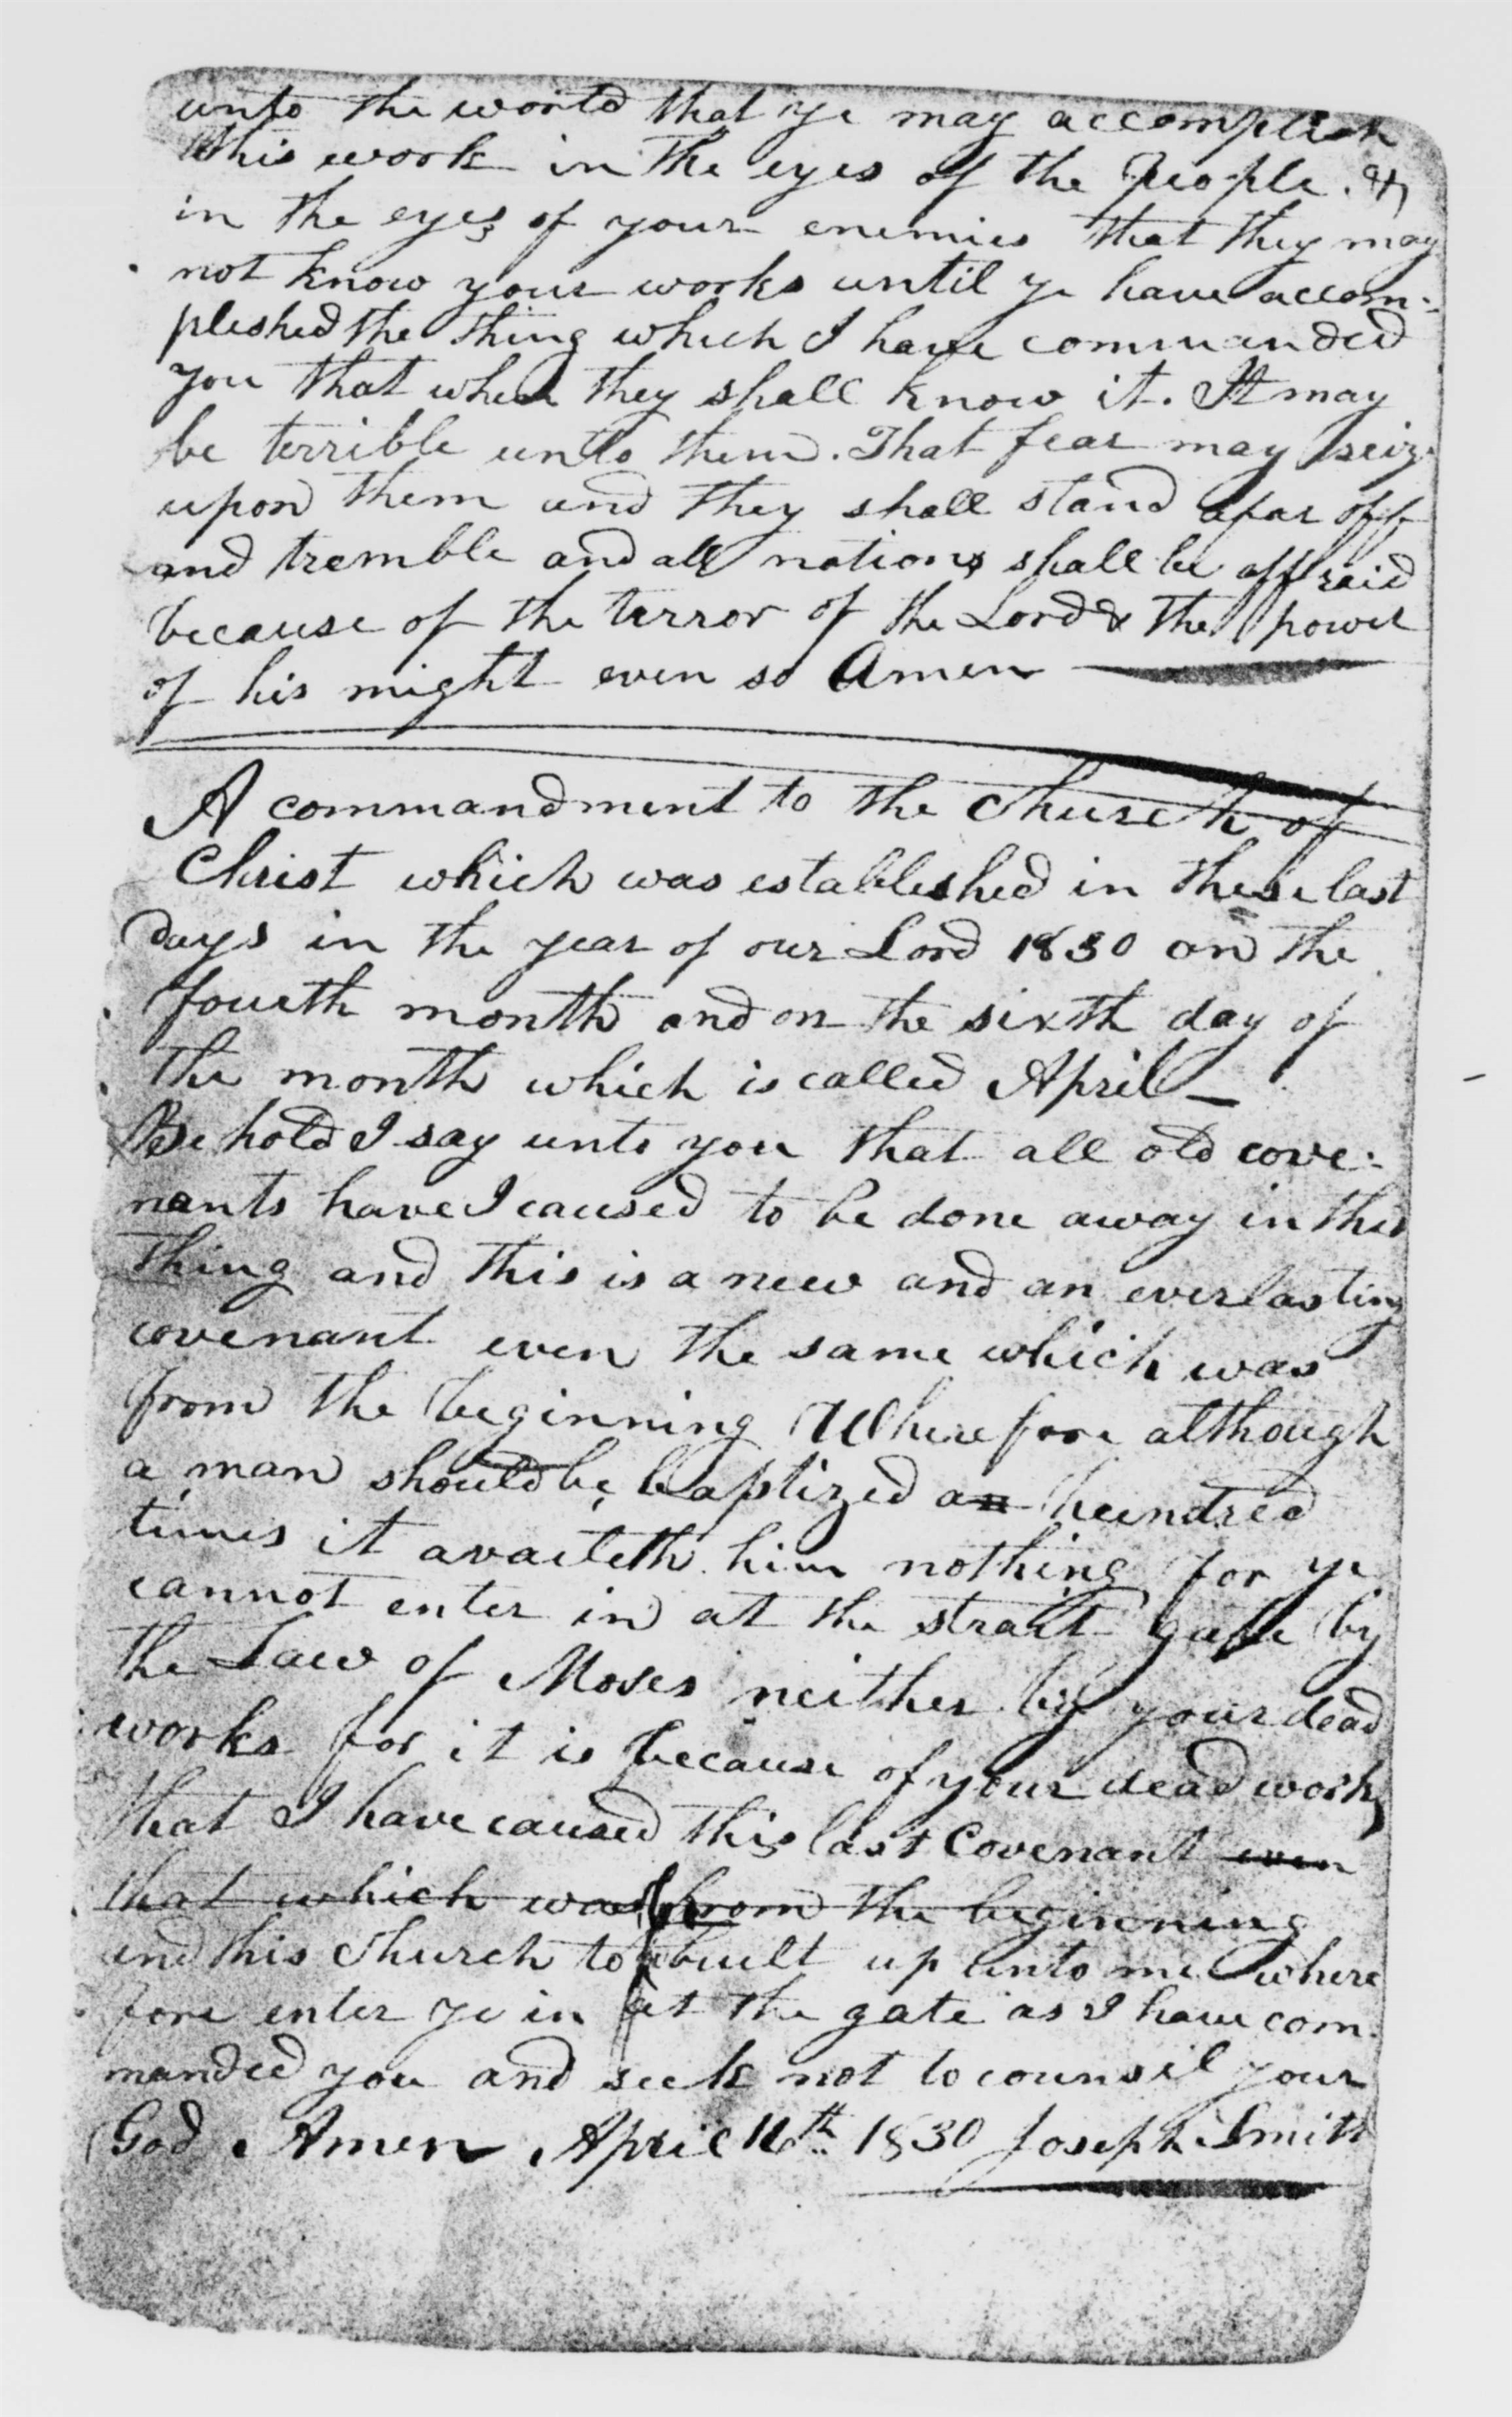 unto the world that ye may accomplish
this work in the eyes of the People. &
in the eyes of your enemies that they may
not know your works until ye have accom-
plished the thing which I have commanded
you that when they shall know it. It may
be terrible unto them. That fear may seiz
upon them and they shall stand afar off
and tremble and all nations shall be affraid
because of the terror of the Lord & the power
of his might even so Amen
A commandment to the Church of
Christ which was established in these last
days in the year of our Lord 1830 on the
fourth month and on the sixth day of
the month which is called April
Behold I say unto you that all old cove-
nants have I caused to be done away in this
thing and this is a new and an everlasting
covenant even the same which was
from the beginning Wherefore although
a man should be baptized an hundred
times it availeth him nothing for ye
cannot enter in at the strait gate by
the Law of Moses neither by your dead
works for it is because of your dead works
that I have caused this last Covenant even
that which was from the beginning
and this Church to built up unto me where
fore enter ye in at the gate as I have com-
manded you and seek not to counsil your
God Amen April 16th 1830 Joseph Smith